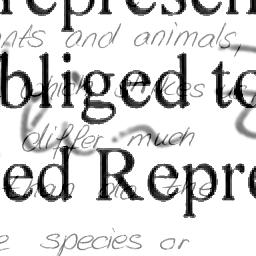 represen
nts and animals,
bliged to
which strikes us
differ much
ed Repre
than do the
species or